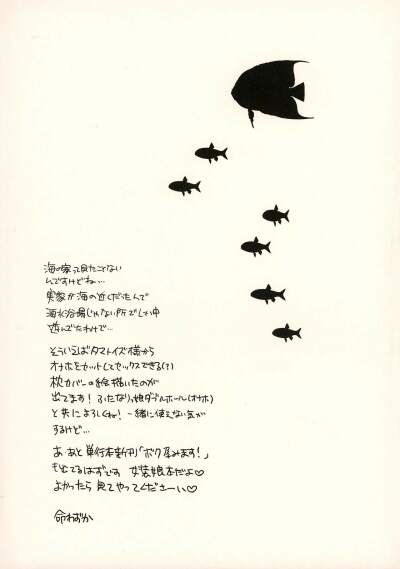 海の家って見たことない
んですけどね…
実家が海の近くだったんで
海水浴場じゃない所でしか
遊んでたわけで…
そういえばタマトイズ様から
オナホをセットしてセックスできる(?)
枕カバーの絵描いたのが
出てます! ふたなりっ娘ダブルホール(オナホ)
と共によろしくね! 一緒に使えない気が
するけど…
あ・あと単行本新刊「ボク孕みます!」
も出てるはずです 女装娘本だよ♡
よかったら見てやってくださーい♡
命わずか